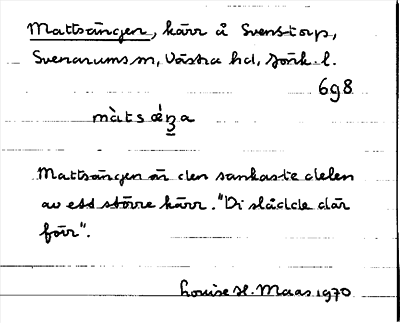 Mattsängen, kärr å Svenstorp,
Svenarums sn, Västra hd, Jönk. l.
6g8
màtsǽŋa
Mattsängen är den sankaste delen
av ett större kärr. "Di slådde där
förr".
Louise H. Maas 1970